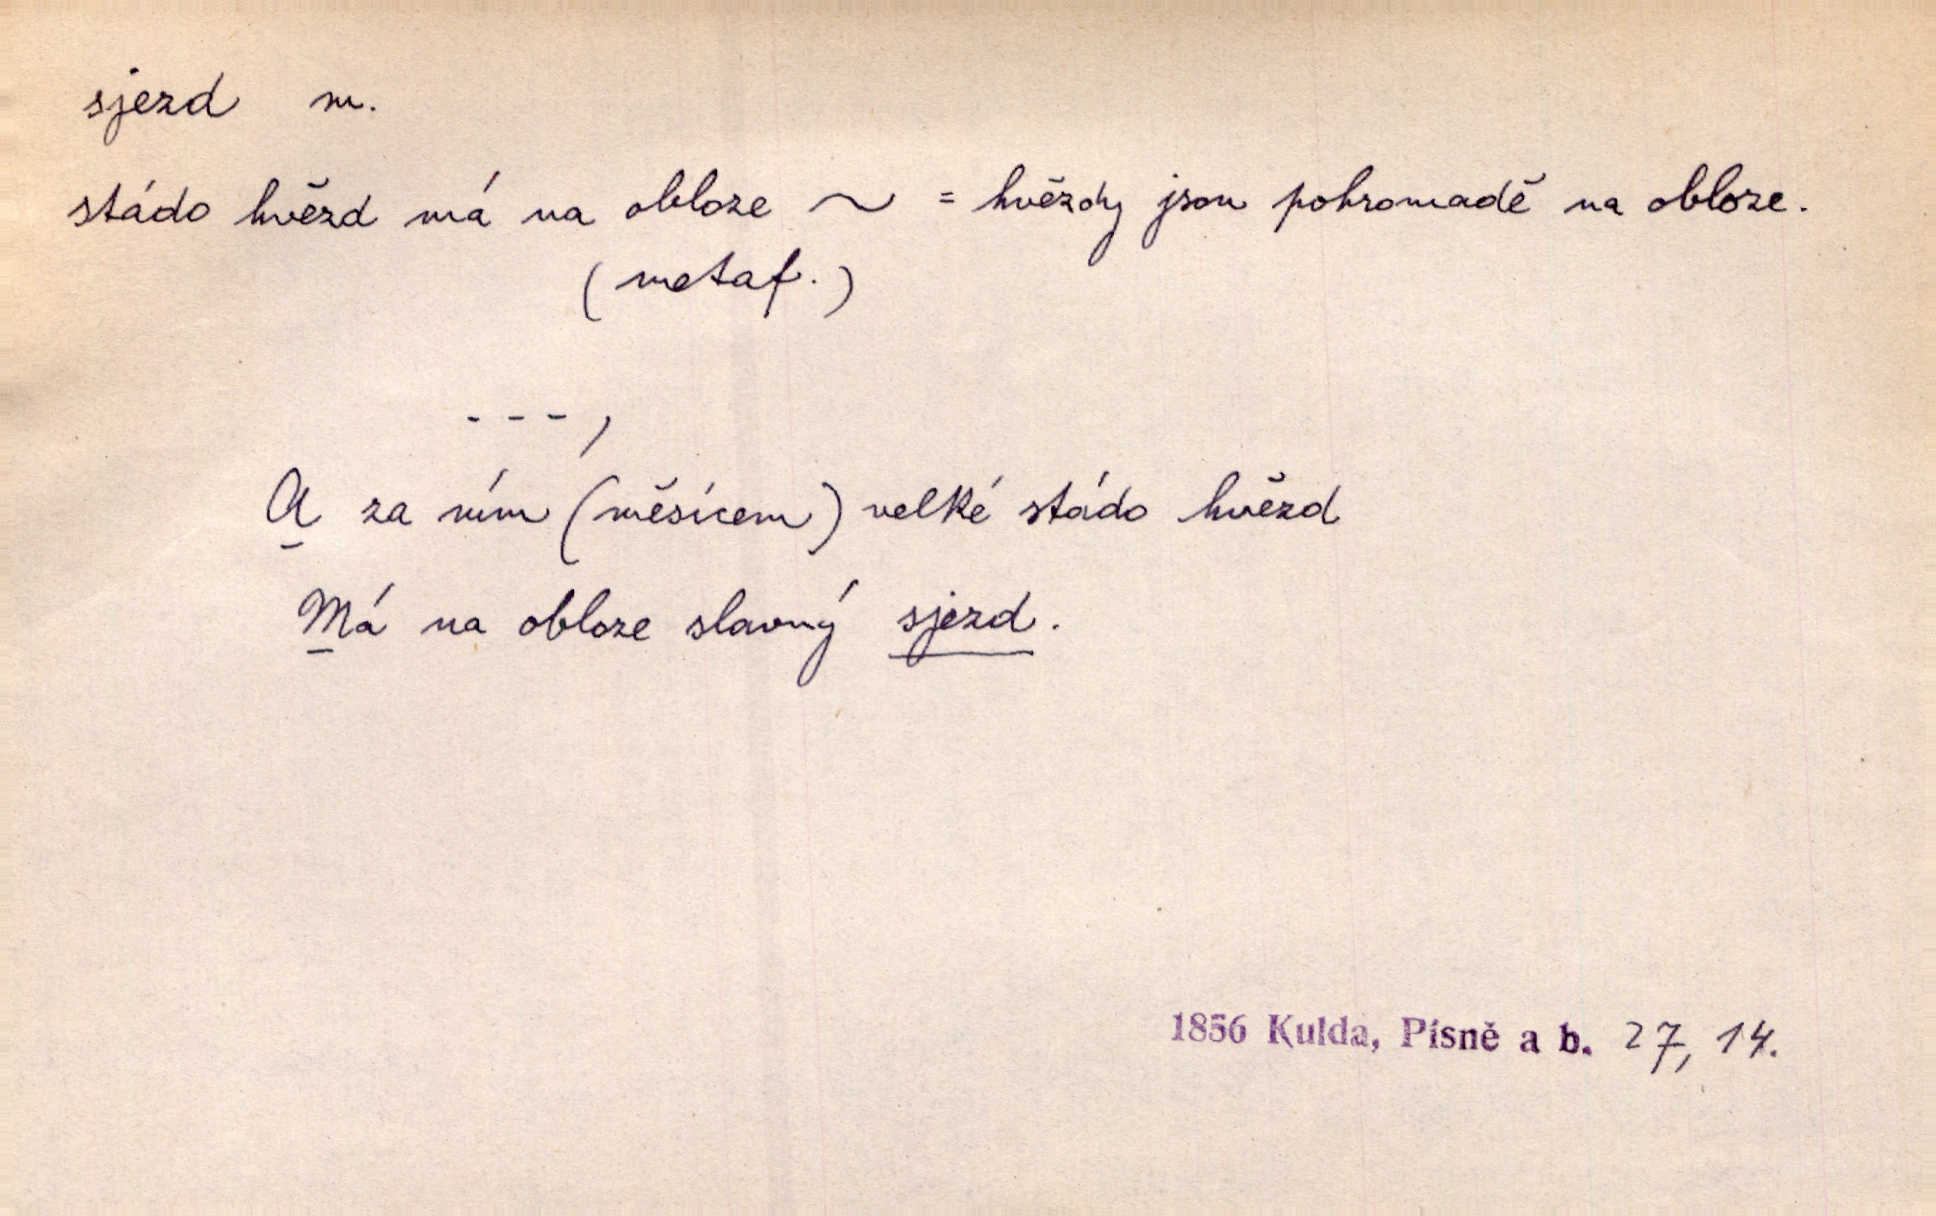 sjezd m.
stádo hvězd má na obloze ~ = hvězdy jsou pohromadě na obloze.
(metaf.)
- - - ,
A za ním (měsícem) velké stádo hvězd
Má na obloze slavný sjezd.
1856 Kulda, Písně a b. 27, 14.